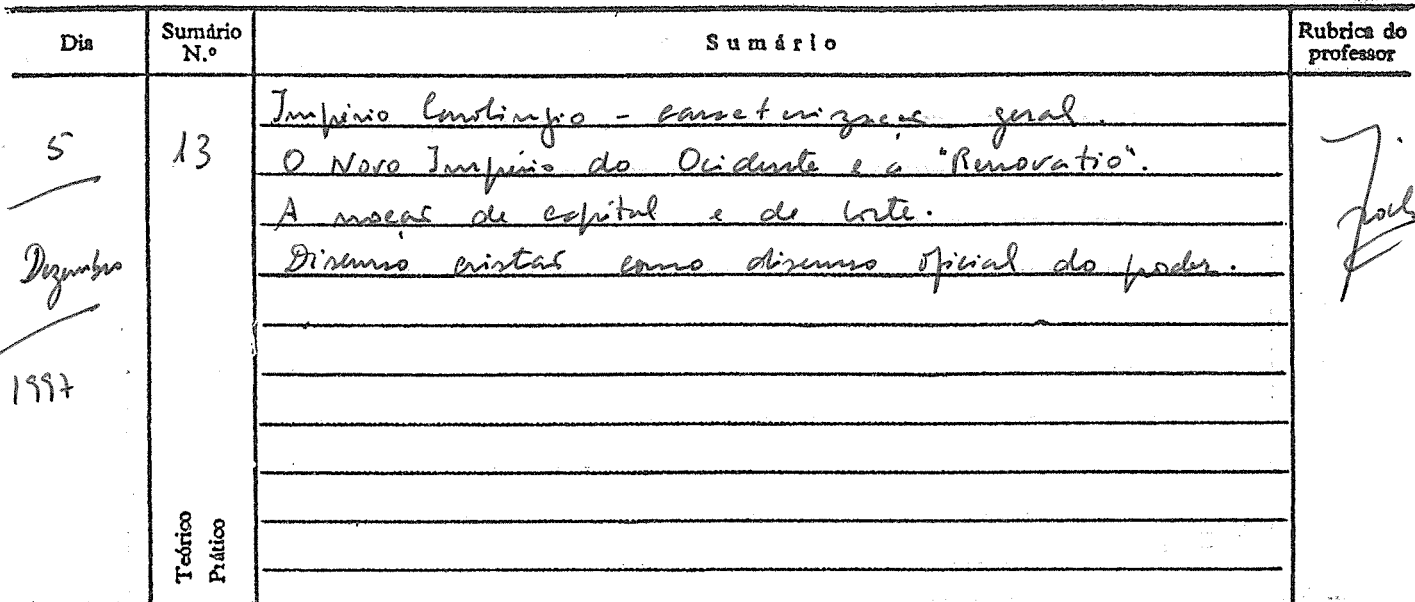 Dia
Sumário N.º
Sumário
Rubrica do professor
5
Dezembro
1997
13
Império Carolíngio - caracterização geral.
O Novo Império do Ocidente e a "Renovatio".
A noção de capital e de corte.
Discurso cristão como discurso oficial do poder.
Teórico
Prático